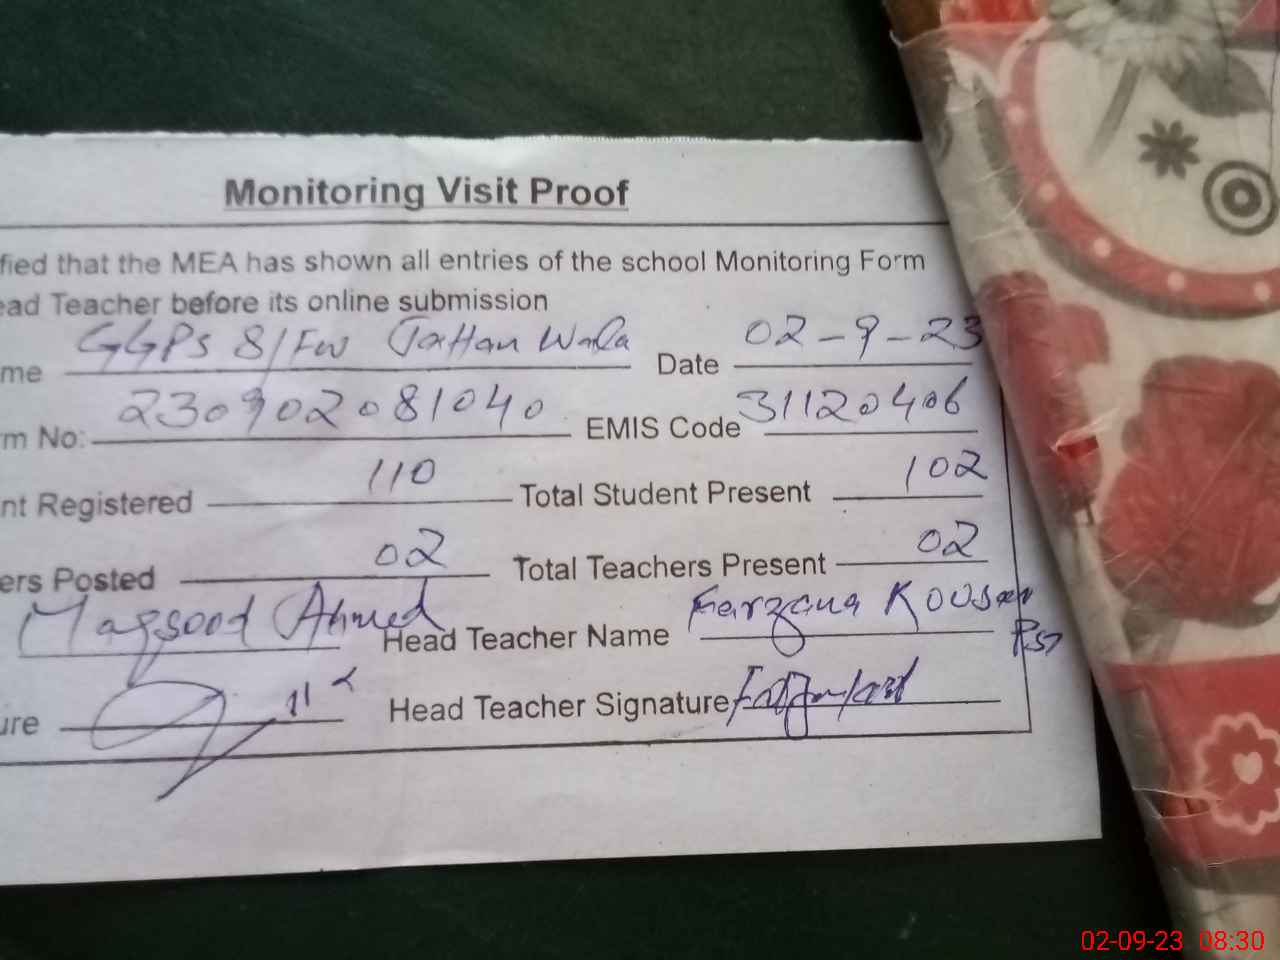 Monitoring Visit Proof
fied that the MEA has shown all entries of the school Monitoring Form
ead Teacher before its online submission
me GGPS 81/FW Jattan Wala Date 02-9-23
rm No: 230902081040 EMIS Code 31120406
nt Registered 110 Total Student Present 102
ers Posted 02 Total Teachers Present 02
Maqsood Ahmed Head Teacher Name Farzana Kousar
PST
ure Head Teacher Signature
02-09-23 08:30